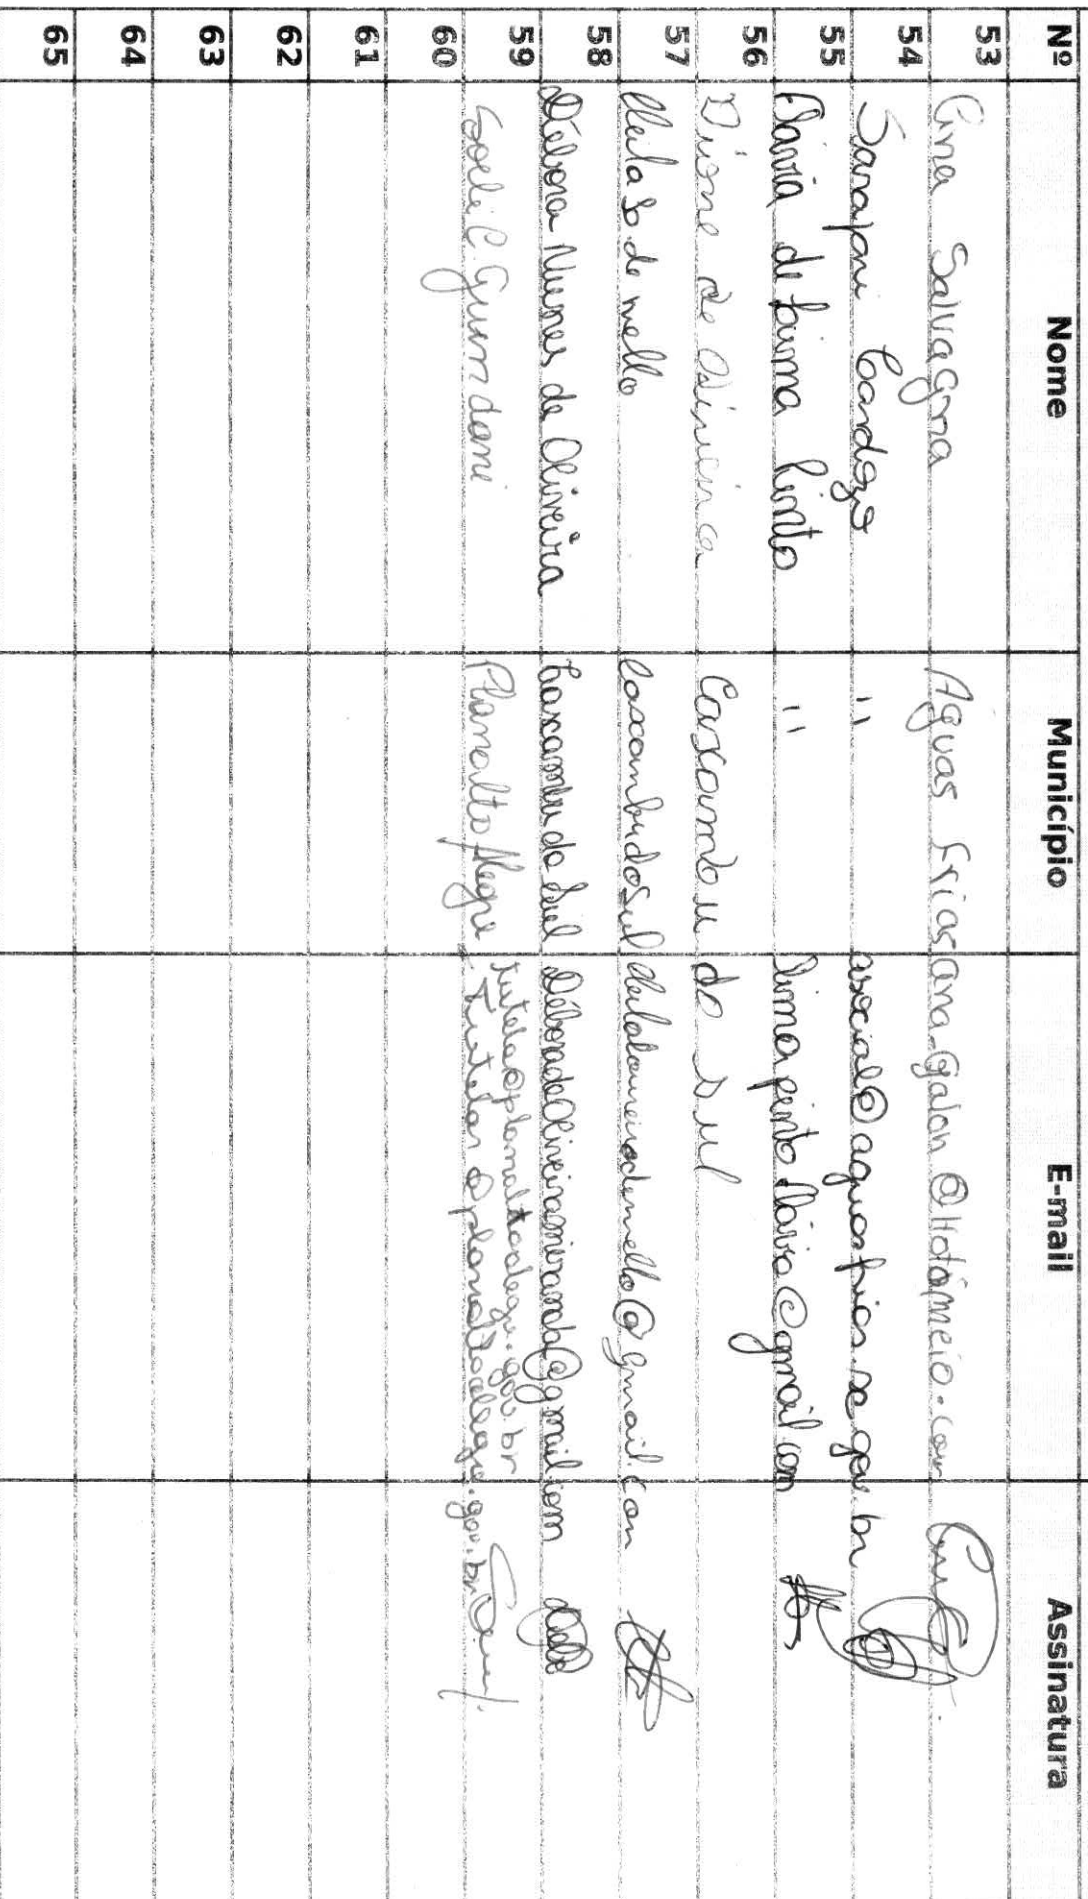 Nº Nome Município E-mail Assinatura
53 Ana Salvagna Aguas Frias ana_galon@Hotomeio.com
54 Sarajani Cardozo " associal@aguasfrias.sc.gov.br
55 Flavia de Lima Pinto " limapintoflavia@gmail.com
56 Dione de Oliveira Caxambu do Sul
57 de mello Caxambu do Sul @gmail.com
58 Débora Nunes de Oliveira Caxambu do Sul DéboradeOliveiramiranda@gmail.com
59 Soeli C. Planalto Alegre tutela@planaltoalegre.gov.br
Tutelar@planaltoalegre.gov.br
60
61
62
63
64
65